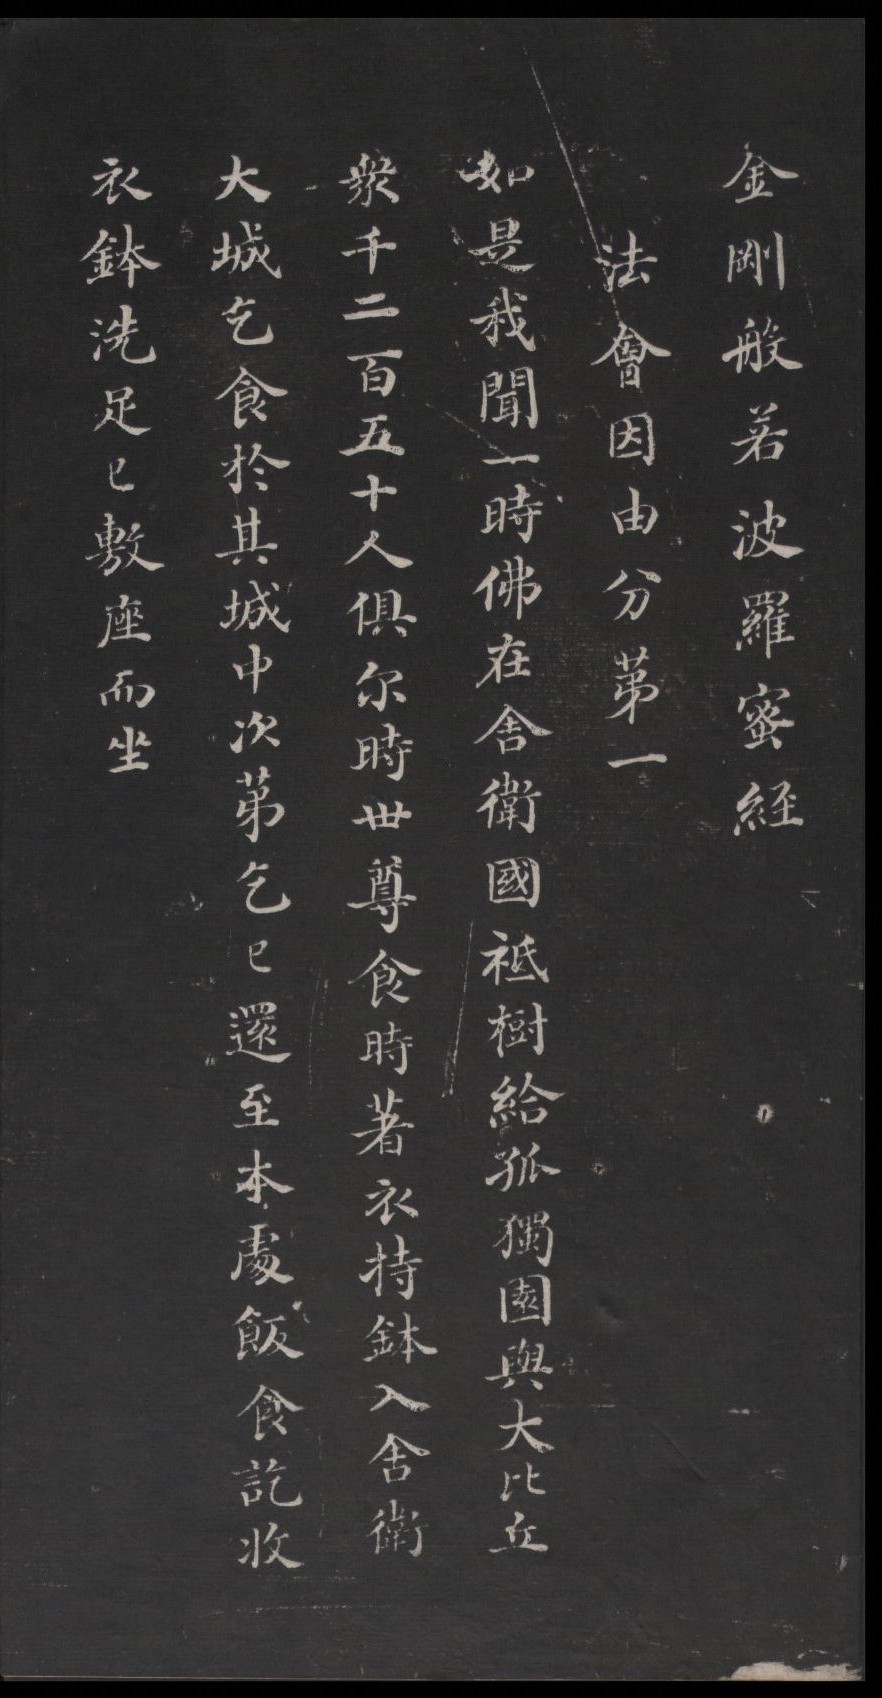 金剛般若波羅蜜経
法會因由分苐一
如是我聞一時佛在舍衛國祇樹給孤獨園與大比丘
衆千二百五十人俱尔時世尊食時著衣持鉢入舍衛
大城乞食於其城中次苐乞已還至本處飯食訖收
衣鉢洗足已敷座而坐